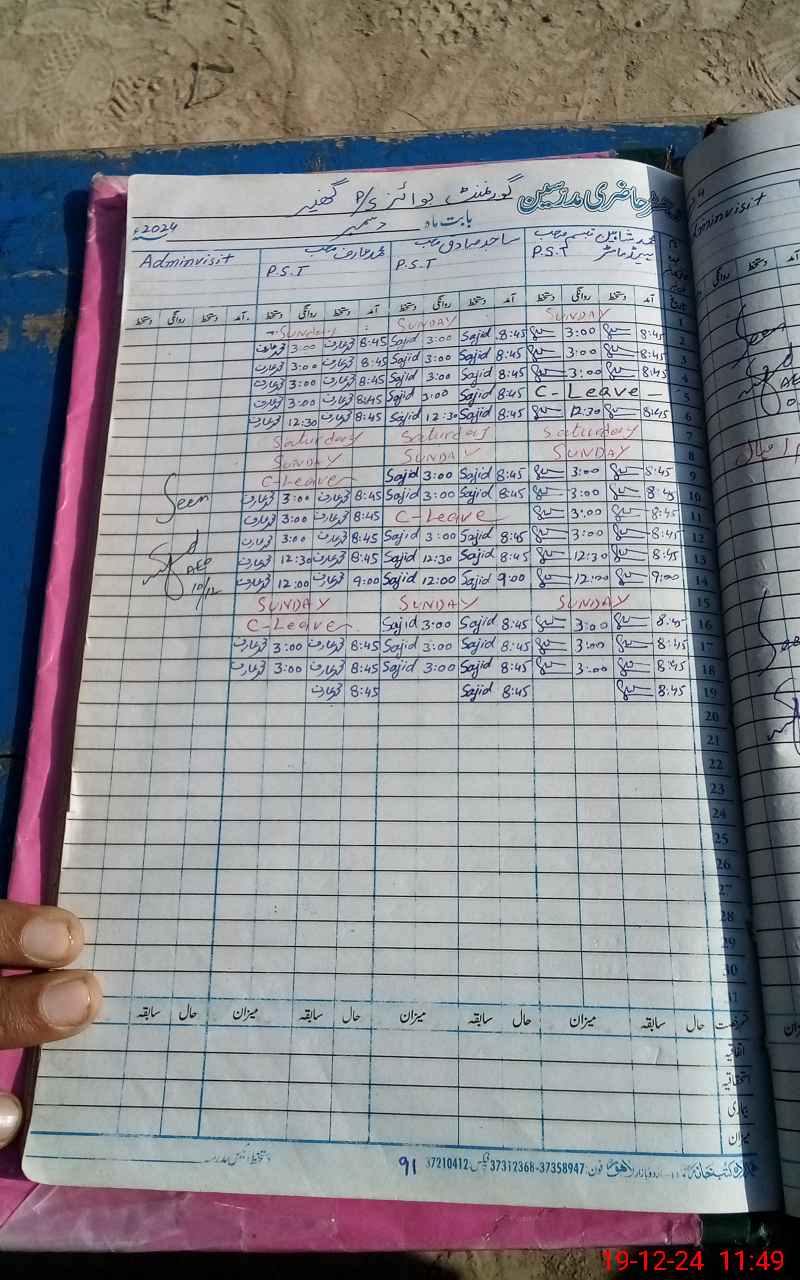 رجسٹر حاضری مدرسین گورنمنٹ بوائز P/S
بابت ماہ دسمبر 2024ء
محمد شاہین ہیڈ ماسٹر P.S.T ساجد صادق صاحب P.S.T محمد عارف صاحب P.S.T Adminvisit
آمد دستخط روانگی دستخط آمد دستخط روانگی دستخط آمد دستخط روانگی دستخط آمد دستخط روانگی دستخط
1 SUNDAY SUNDAY Sunday
2 8:45 3:00 8:45 Sajid 3:00 Sajid 8:45 محمد عارف 3:00 محمد عارف
3 8:45 3:00 8:45 Sajid 3:00 Sajid 8:45 محمد عارف 3:00 محمد عارف
4 8:45 3:00 8:45 Sajid 3:00 Sajid 8:45 محمد عارف 3:00 محمد عارف
5 C-Leave 8:45 Sajid 3:00 Sajid 8:45 محمد عارف 3:00 محمد عارف
6 8:45 12:30 8:45 Sajid 12:30 Sajid 8:45 محمد عارف 12:30 محمد عارف
7 Saturday Saturday Saturday
8 SUNDAY SUNDAY SUNDAY
9 8:45 3:00 8:45 Sajid 3:00 Sajid C-Leave
10 8:45 3:00 8:45 Sajid 3:00 Sajid 8:45 محمد عارف 3:00 محمد عارف Seen
11 8:45 3:00 C-Leave 8:45 محمد عارف 3:00 محمد عارف
12 8:45 3:00 8:45 Sajid 3:00 Sajid 8:45 محمد عارف 3:00 محمد عارف
13 8:45 12:30 8:45 Sajid 12:30 Sajid 8:45 محمد عارف 12:30 محمد عارف AEO
14 9:00 12:00 9:00 Sajid 12:00 Sajid 9:00 محمد عارف 12:00 محمد عارف 10/12
15 SUNDAY SUNDAY SUNDAY
16 8:45 3:00 8:45 Sajid 3:00 Sajid C-Leave
17 8:45 3:00 8:45 Sajid 3:00 Sajid 8:45 محمد عارف 3:00 محمد عارف
18 8:45 3:00 8:45 Sajid 3:00 Sajid 8:45 محمد عارف 3:00 محمد عارف
19 8:45 8:45 Sajid 8:45 محمد عارف
20
21
22
23
24
25
26
27
28
29
30
31
رخصت حال سابقہ میزان حال سابقہ میزان حال سابقہ میزان حال سابقہ
اتفاقیہ
استحقاقیہ
بیماری
میزان
کتب خانہ اردو بازار لاہور فون: 37358947-37312368 فیکس: 37210412 91 دستخط انچارج مدرسہ
19-12-24 11:49